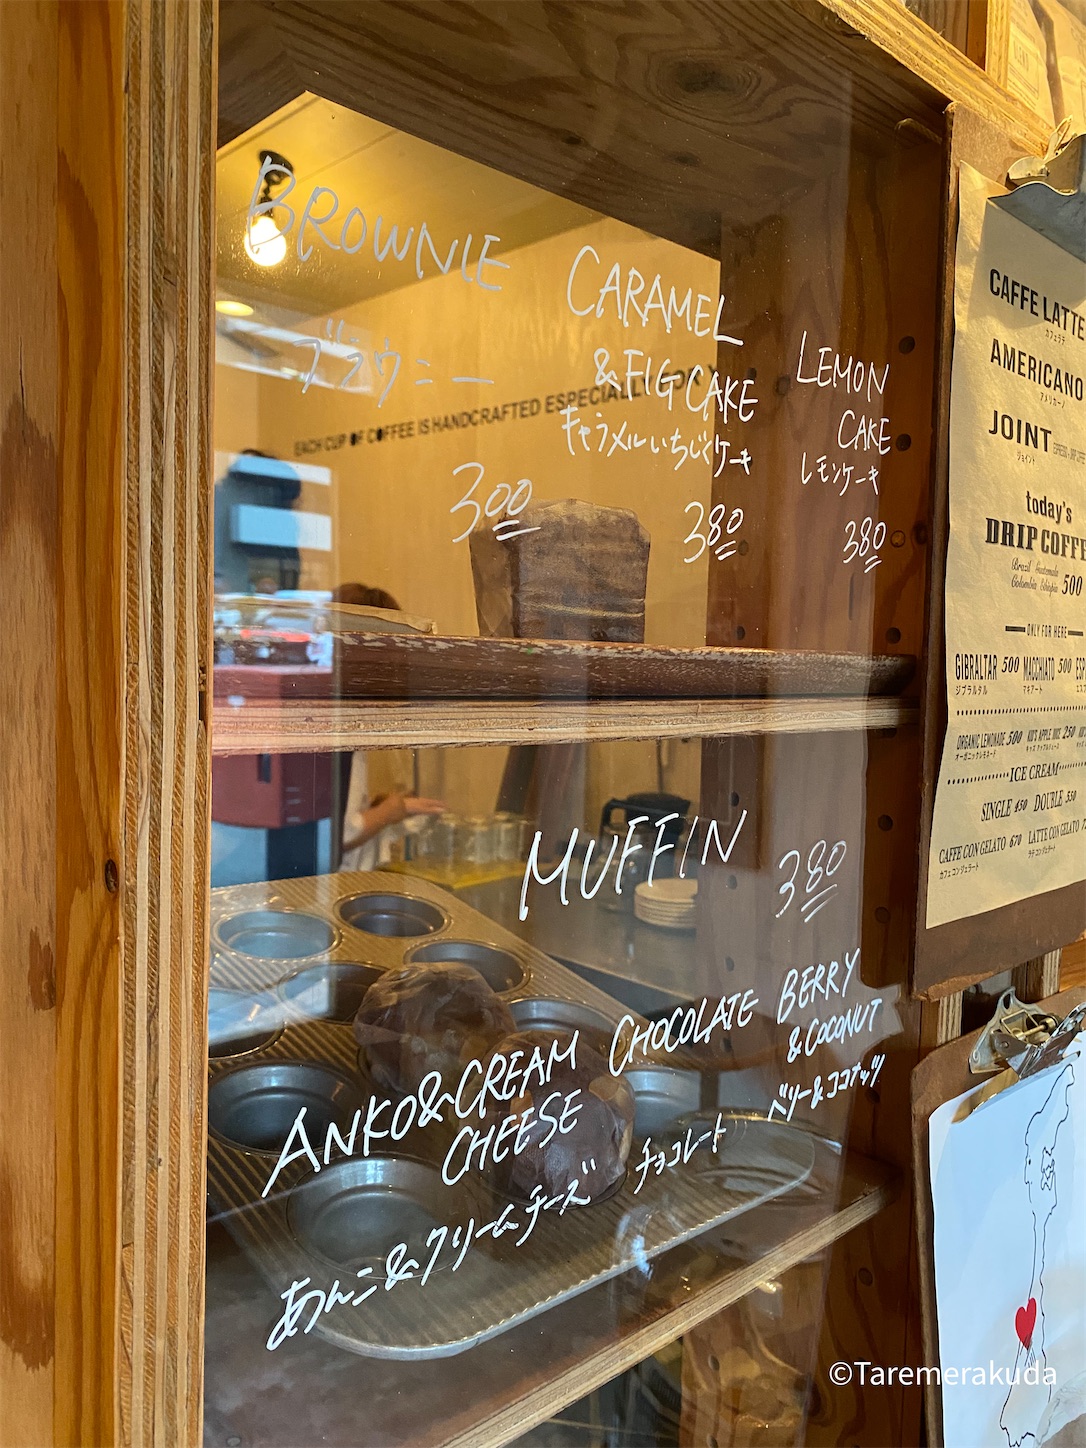 BROWNIE
ブラウニー
300
CARAMEL
& FIG CAKE
キャラメルいちじくケーキ
380
LEMON
CAKE
レモンケーキ
380
EACH CUP OF COFFEE IS HANDCRAFTED ESPECIALLY FOR Y
MUFFIN
380
ANKO&CREAM
CHEESE
あんこ&クリームチーズ
CHOCOLATE
チョコレート
BERRY
& COCONUT
ベリー&ココナッツ
CAFFE LATTE
カフェラテ
AMERICANO
アメリカーノ
JOINT
ジョイント
today's
DRIP COFFE
Brazil Guatemala
Colombia Ethiopia 500
ONLY FOR HERE
GIBRALTAR 500 MACCHIATO 500 ESP
ジブラルタル マキアート エスプ
ORGANIC LEMONADE 500 KID'S APPLE JUICE 250
オーガニックレモネード キッズアップルジュース
ICE CREAM
SINGLE 450 DOUBLE 550
CAFFE CON GELATO 670 LATTE CON GELATO 7
カフェコンジェラート ラテコンジェラート
©Taremerakuda